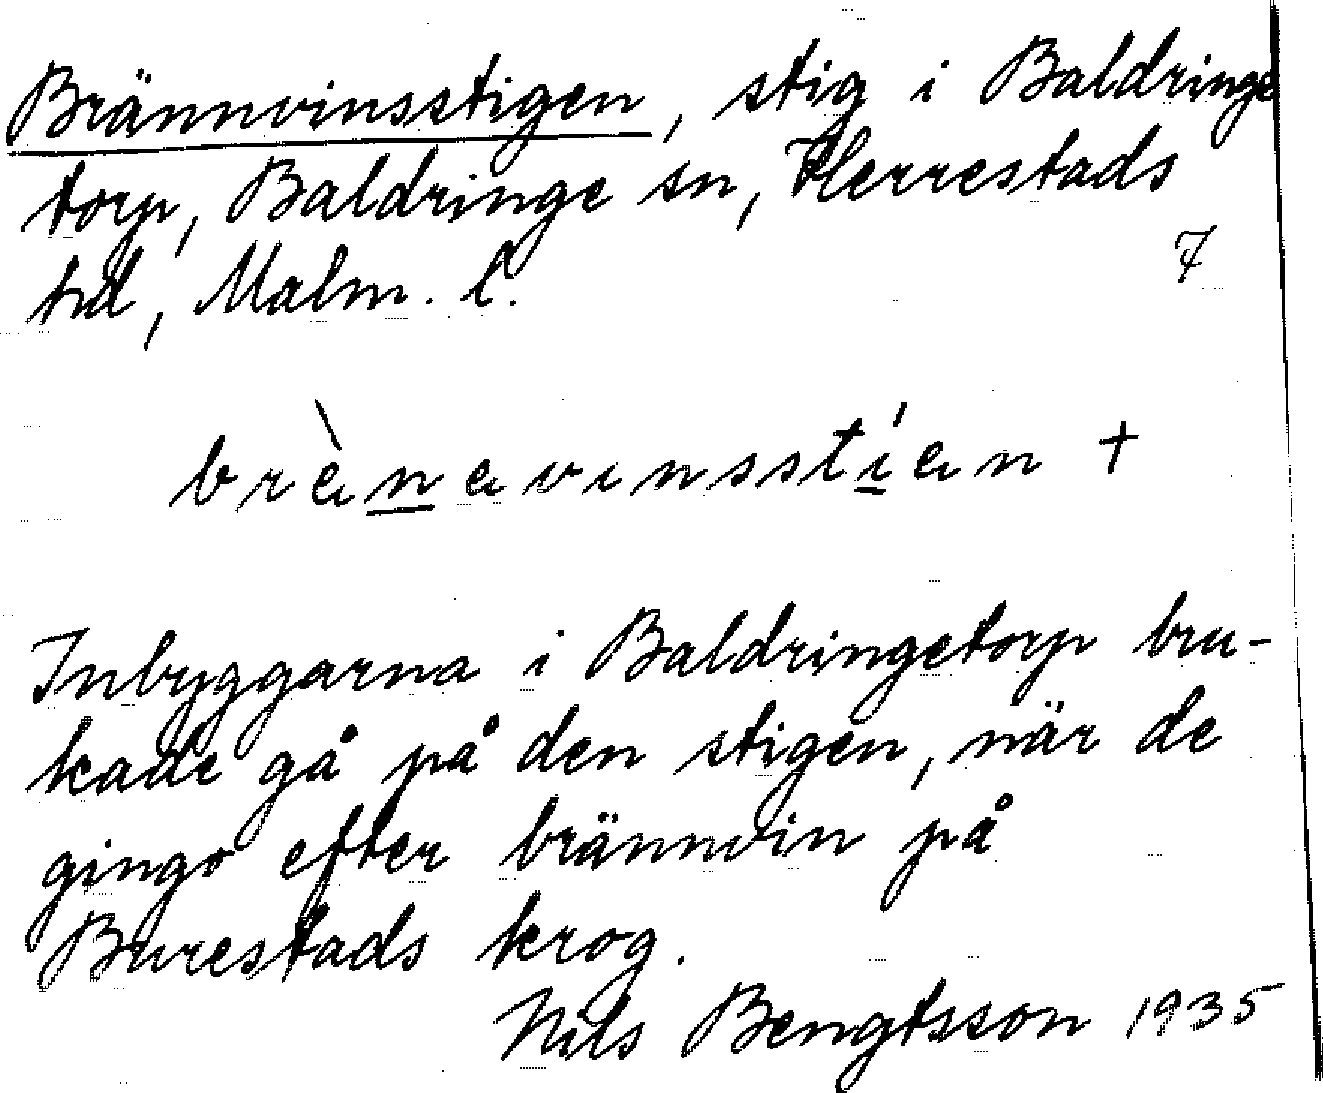 Brännvinsstigen, stig i Baldringe
torp, Baldringe sn, Herrestads
hd, Malm. l.
7
brènevinsstíen +
Inbyggarna i Baldringetorp bru-
kade gå på den stigen, när de
gingo efter brännvin på
Burestads krog.
Nils Bengtsson 1935